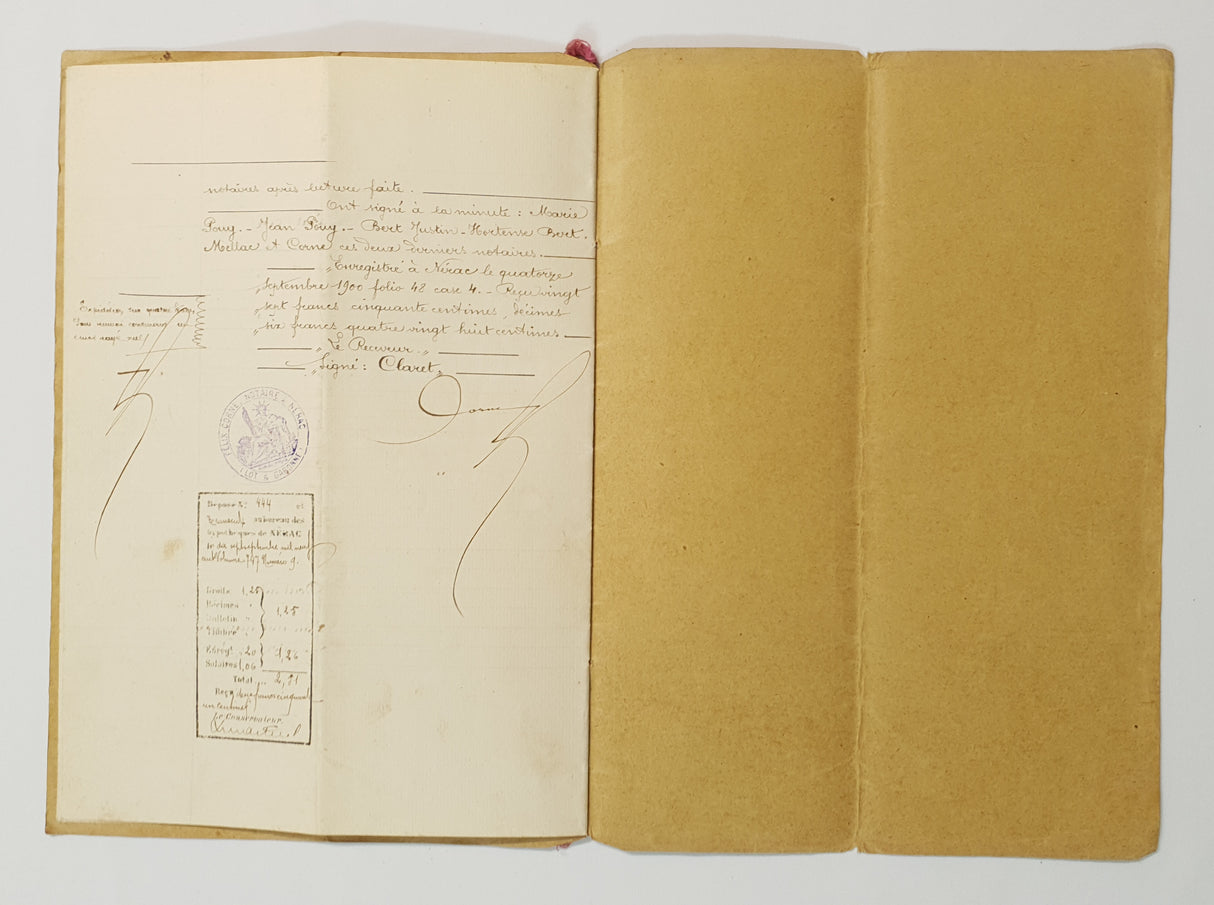 notaires après lecture faite.
Ont signé à la minute : Marie
Pouy. - Jean Pouy. - Bert Justin - Hortense Bert.
Mellac et Corne ces deux derniers notaires.
"Enregistré à Nérac le quatorze
"Septembre 1900 folio 48 case 4. - Reçu vingt
"sept francs cinquante centimes, décimes
"six francs quatre vingt huit centimes.
"Le Receveur."
"Signé : Claret"
Corne
Expédition sur quatre
sans renvoi contenant un
mot rayé nul
FELIX CORNE NOTAIRE A NÉRAC
LOT & GARONNE
Déposé No: 444 et
au bureau des
hypothèques de NÉRAC
le dix sept septembre mil neuf
cent Volume 747 Numéro 9.
Droits 1,25
Décimes "
Bulletin " 1,25
Timbre "
Enregt ,20
Salaires 1,06 1,26
Total 2,51
Reçu deux francs cinquante
un centimes
Le Conservateur.